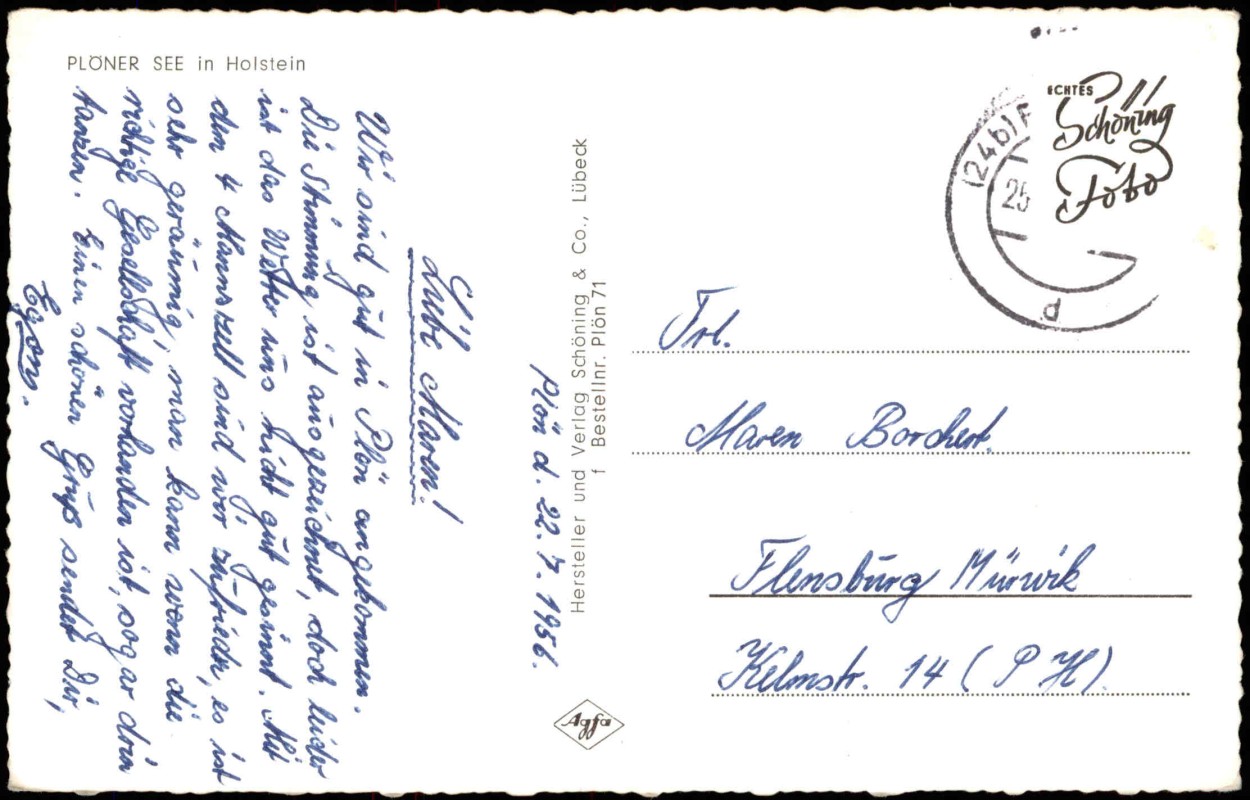 PLÖNER SEE in Holstein
Plön d. 22.7.1956.
Liebe Maren!
Wir sind gut in Plön angekommen.
Die Stimmung ist ausgezeichnet, doch leider
ist das Wetter uns nicht gut gesinnt. Mit
dem 4 Mannszelt sind wir zufrieden, es ist
sehr geräumig, man kann wenn die
richtige Gesellschaft vorhanden ist, sogar drin
tanzen. Einen schönen Gruß sendet Dir,
Egon.
Hersteller und Verlag Schöning & Co., Lübeck
f Bestellnr. Plön 71
Agfa
ECHTES
Schöning
Foto
(24b) F
25
d
Frl.
Maren Borchert.
Flensburg Mürwik
Kelmstr. 14 (P H).